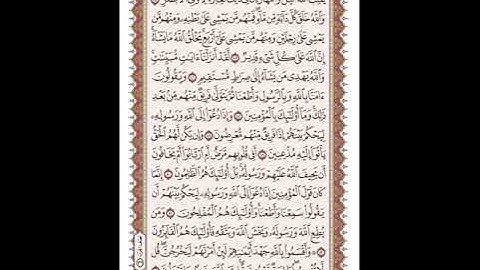 وَٱللَّهُ خَلَقَ كُلَّ دَآبَّةٍ مِّن مَّآءٍ فَمِنْهُم مَّن يَمْشِى عَلَىٰ بَطْنِهِۦ وَمِنْهُم مَّن
يَمْشِى عَلَىٰ رِجْلَيْنِ وَمِنْهُم مَّن يَمْشِى عَلَىٰٓ أَرْبَعٍ يَخْلُقُ ٱللَّهُ مَا يَشَآءُ
إِنَّ ٱللَّهَ عَلَىٰ كُلِّ شَىْءٍ قَدِيرٌ لَّقَدْ أَنزَلْنَآ ءَايَٰتٍ مُّبَيِّنَٰتٍ
وَٱللَّهُ يَهْدِى مَن يَشَآءُ إِلَىٰ صِرَٰطٍ مُّسْتَقِيمٍ وَيَقُولُونَ
ءَامَنَّا بِٱللَّهِ وَبِٱلرَّسُولِ وَأَطَعْنَا ثُمَّ يَتَوَلَّىٰ فَرِيقٌ مِّنْهُم مِّنۢ بَعْدِ
ذَٰلِكَ وَمَآ أُو۟لَٰٓئِكَ بِٱلْمُؤْمِنِينَ وَإِذَا دُعُوٓا۟ إِلَى ٱللَّهِ وَرَسُولِهِۦ
لِيَحْكُمَ بَيْنَهُمْ إِذَا فَرِيقٌ مِّنْهُم مُّعْرِضُونَ وَإِن يَكُن لَّهُمُ ٱلْحَقُّ
يَأْتُوٓا۟ إِلَيْهِ مُذْعِنِينَ أَفِى قُلُوبِهِم مَّرَضٌ أَمِ ٱرْتَابُوٓا۟ أَمْ يَخَافُونَ
أَن يَحِيفَ ٱللَّهُ عَلَيْهِمْ وَرَسُولُهُۥ بَلْ أُو۟لَٰٓئِكَ هُمُ ٱلظَّٰلِمُونَ إِنَّمَا
كَانَ قَوْلَ ٱلْمُؤْمِنِينَ إِذَا دُعُوٓا۟ إِلَى ٱللَّهِ وَرَسُولِهِۦ لِيَحْكُمَ بَيْنَهُمْ أَن
يَقُولُوا۟ سَمِعْنَا وَأَطَعْنَا وَأُو۟لَٰٓئِكَ هُمُ ٱلْمُفْلِحُونَ وَمَن
يُطِعِ ٱللَّهَ وَرَسُولَهُۥ وَيَخْشَ ٱللَّهَ وَيَتَّقْهِ فَأُو۟لَٰٓئِكَ هُمُ ٱلْفَآئِزُونَ
وَأَقْسَمُوا۟ بِٱللَّهِ جَهْدَ أَيْمَٰنِهِمْ لَئِنْ أَمَرْتَهُمْ لَيَخْرُجُنَّ قُل